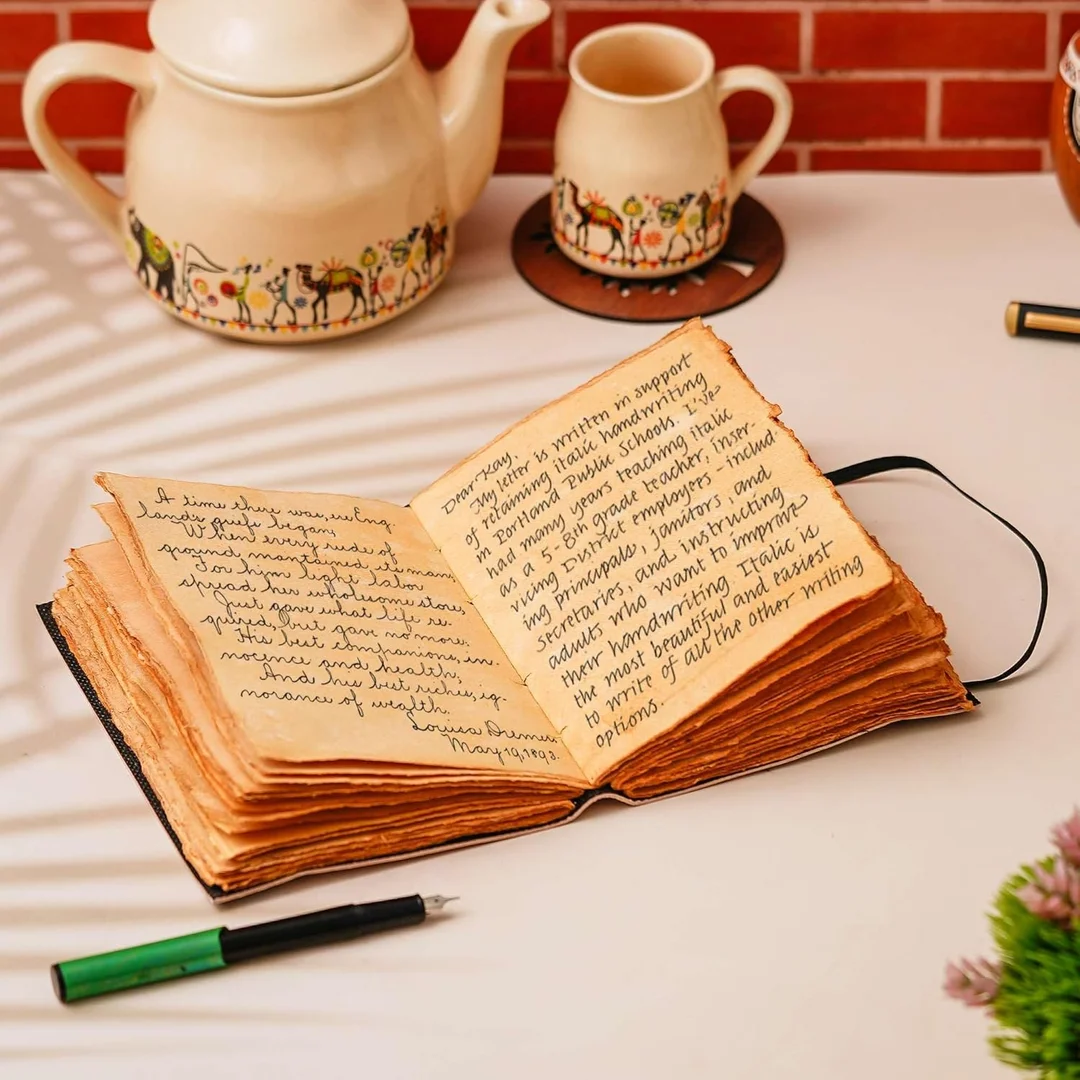 A time there was, ere Eng-
land's griefs began,
When every rude of
ground maintained its man;
For him light labor
spread her wholesome store,
Just gave what life re-
quired, but gave no more.
His best companions, in-
nocence and health;
And his best riches, ig-
norance of wealth.
Louisa
May 19, 1893.
Dear Kay,
My letter is written in support
of retaining italic handwriting
in Portland Public Schools. I've
had many years teaching italic
as a 5-8th grade teacher, inser-
vicing District employers - includ-
ing principals, janitors, and
secretaries, and instructing
adults who want to improve
their handwriting. Italic is
the most beautiful and easiest
to write of all the other writing
options.